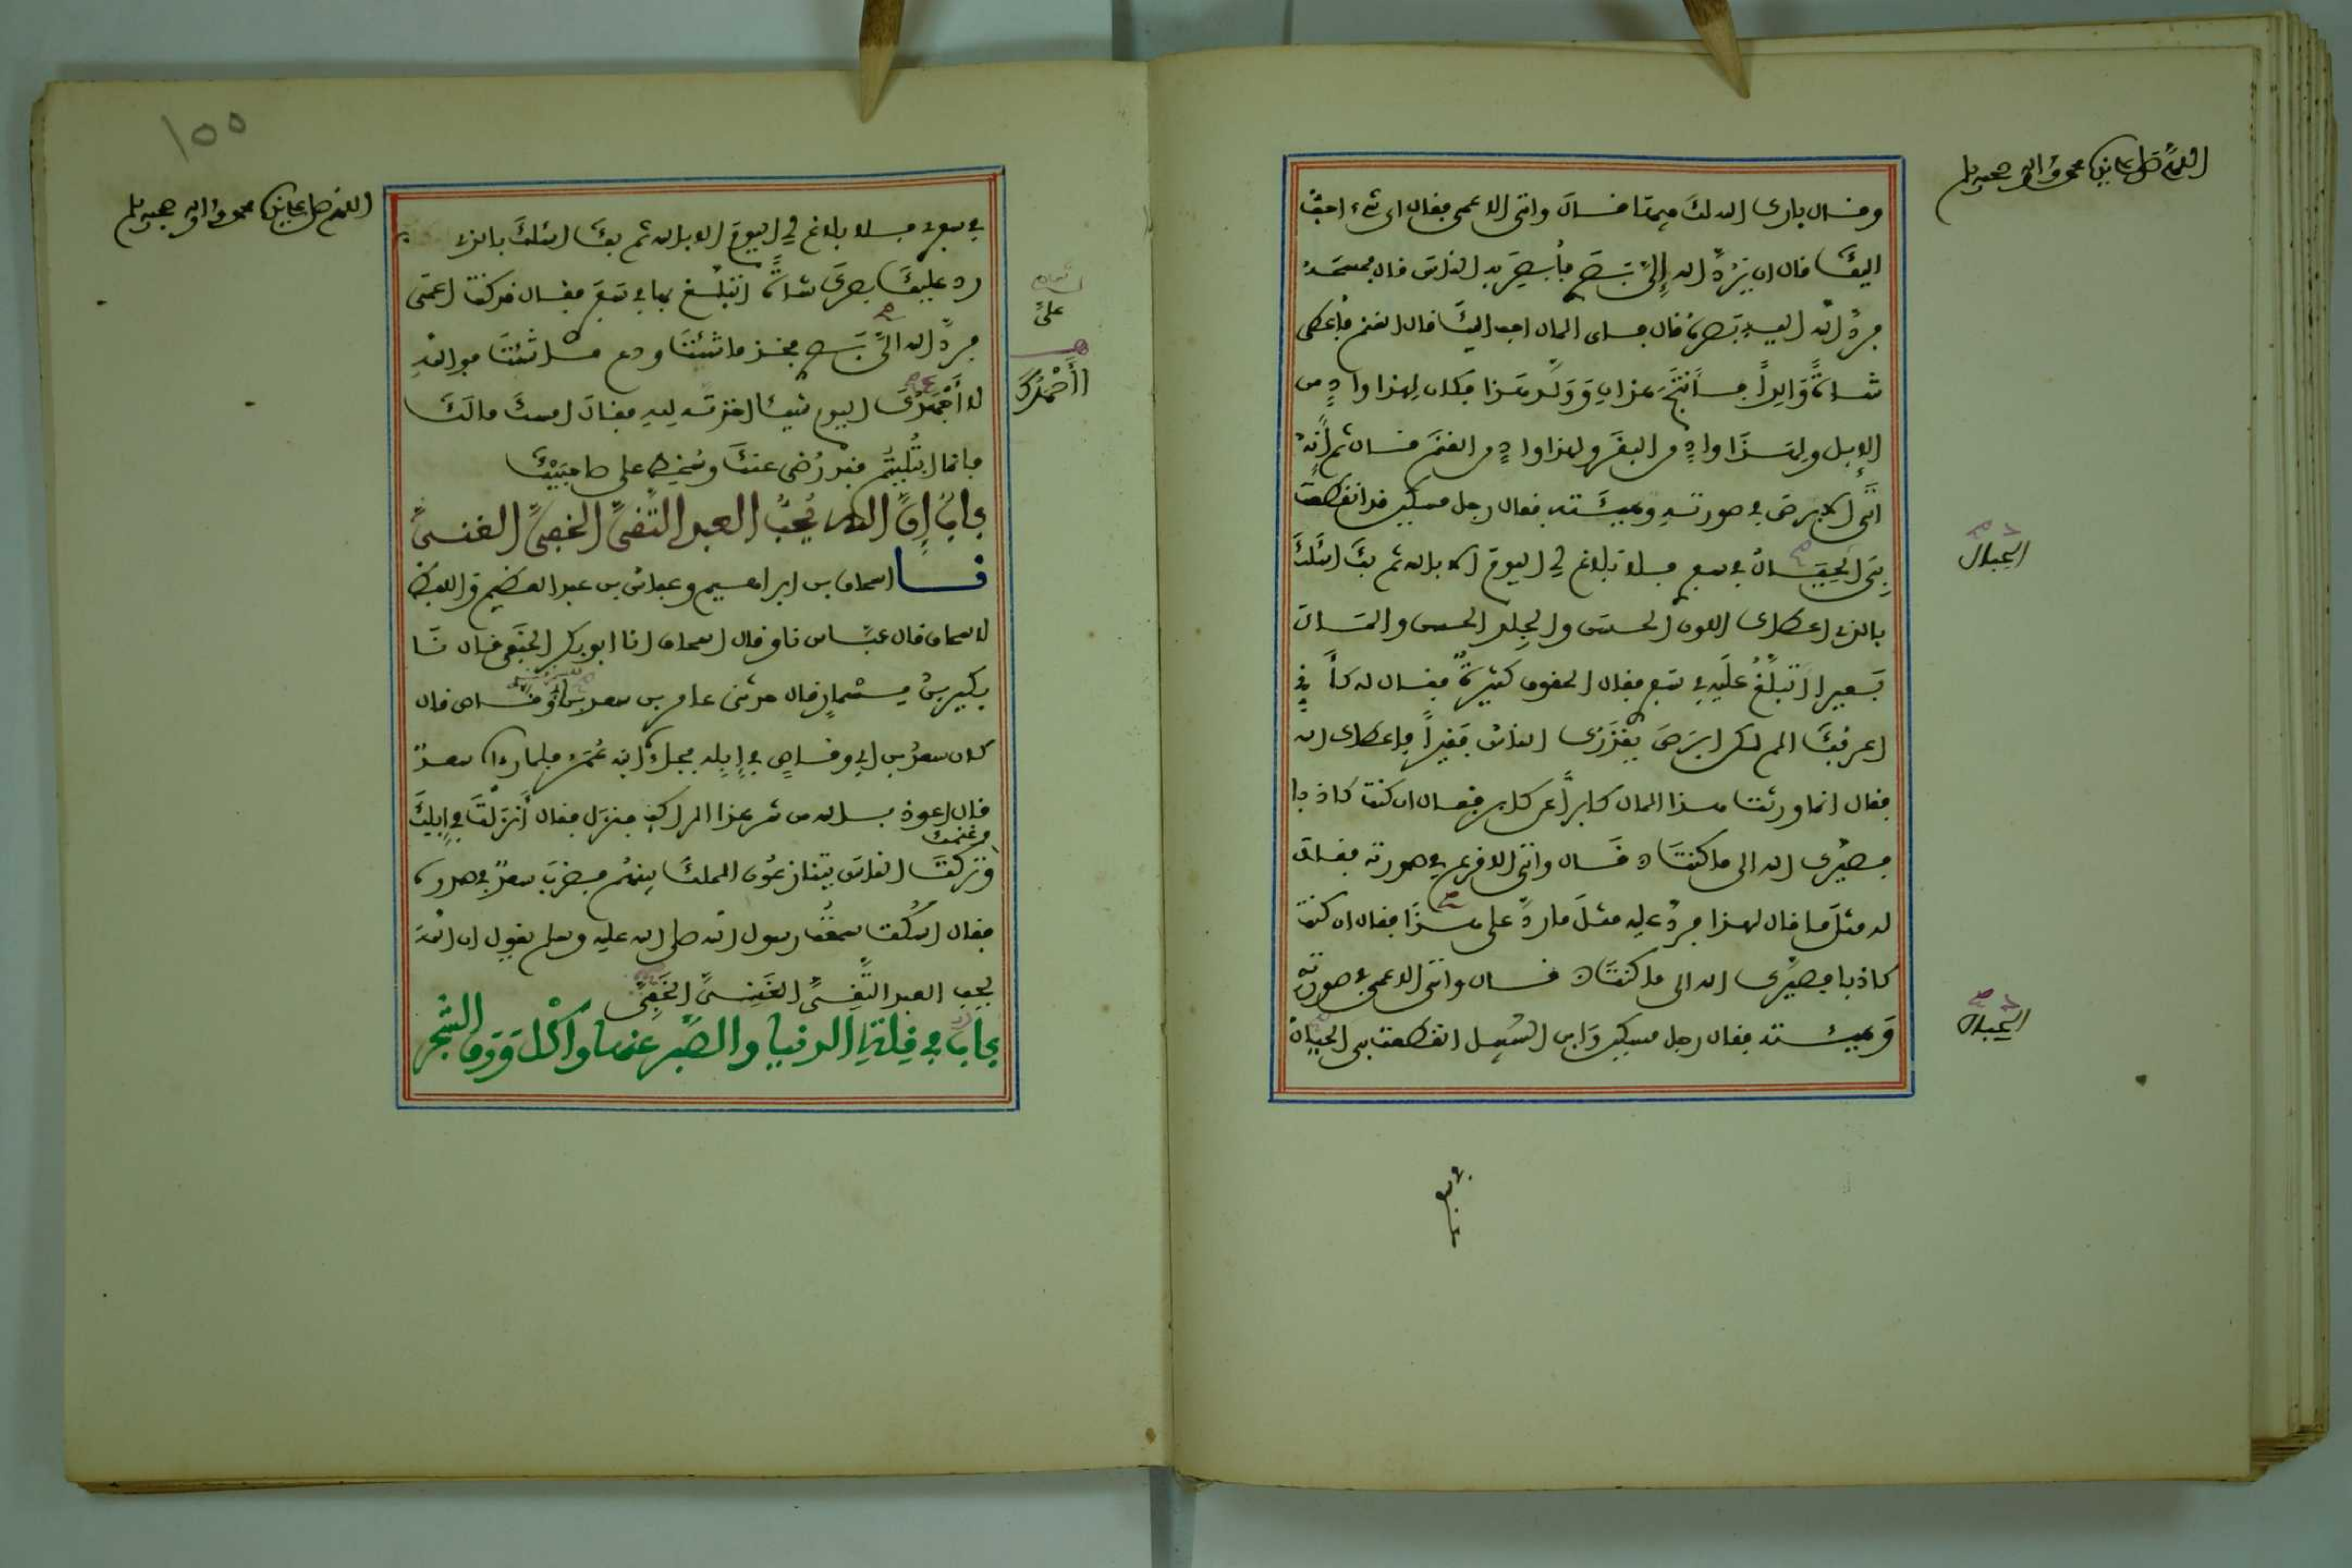 اللهم صل على نبينا محمد وآله وصحبه وسلم
وقال بارك الله لك فيها قال وأتى الأعمى فقال أي شيء أحب
إليك قال أن يرد الله إلي بصري فأبصر به الناس قال فمسحه
فرد الله إليه بصره قال فأي المال أحب إليك قال الغنم فأعطي
شاة والدا فأنتج هذان وولد هذا فكان لهذا واد من
الإبل ولهذا واد من البقر ولهذا واد من الغنم قال ثم إنه
أتى الأبرص في صورته وهيئته فقال رجل مسكين قد انقطعت
بي الحبال في سفري فلا بلاغ لي اليوم إلا بالله ثم بك أسئلك
بالذي أعطاك اللون الحسن والجلد الحسن والمال
بعيرا أتبلغ عليه في سفري فقال الحقوق كثيرة فقال له كأني
أعرفك ألم تكن أبرص يقذرك الناس فقيرا فأعطاك الله
فقال إنما ورثت هذا المال كابرا عن كابر فقال إن كنت كاذبا
فصيرك الله إلى ما كنت قال وأتى الأقرع في صورته فقال
له مثل ما قال لهذا فرد عليه مثل ما رد على هذا فقال إن كنت
كاذبا فصيرك الله إلى ما كنت قال وأتى الأعمى في صورته
وهيئته فقال رجل مسكين وابن السبيل انقطعت بي الحبال
الحبال
الحبال
في سفري
١٥٥
اللهم صل على نبينا محمد وآله وصحبه وسلم
في سفري فلا بلاغ لي اليوم إلا بالله ثم بك أسئلك بالذي
رد عليك بصرك شاة أتبلغ بها في سفري فقال قد كنت أعمى
فرد الله إلي بصري فخذ ما شئت ودع ما شئت فوالله
لا أجهدك اليوم شيئا أخذته لله فقال أمسك مالك
فإنما ابتليتم فقد رضي عنك وسخط على صاحبيك
باب إن الله يحب العبد التقي الخفي الغني
نا إسحاق بن إبراهيم وعباس بن عبد العظيم واللفظ
لإسحاق قال عباس نا وقال إسحاق أنا أبو بكر الحنفي قال نا
بكير بن مسمار قال حدثني عامر بن سعد بن أبي وقاص قال
كان سعد بن أبي وقاص في إبله فجاءه ابنه عمر فلما رآه سعد
قال أعوذ بالله من شر هذا الراكب فنزل فقال أنزلت في إبلك
وغنمك
وتركت الناس يتنازعون الملك بينهم فضرب سعد في صدره
فقال اسكت سمعت رسول الله صلى الله عليه وسلم يقول إن الله
يحب العبد التقي الغني الخفي
باب في قلة الدنيا والصبر عنها وأكل ورق الشجر
علي
أأحمدك